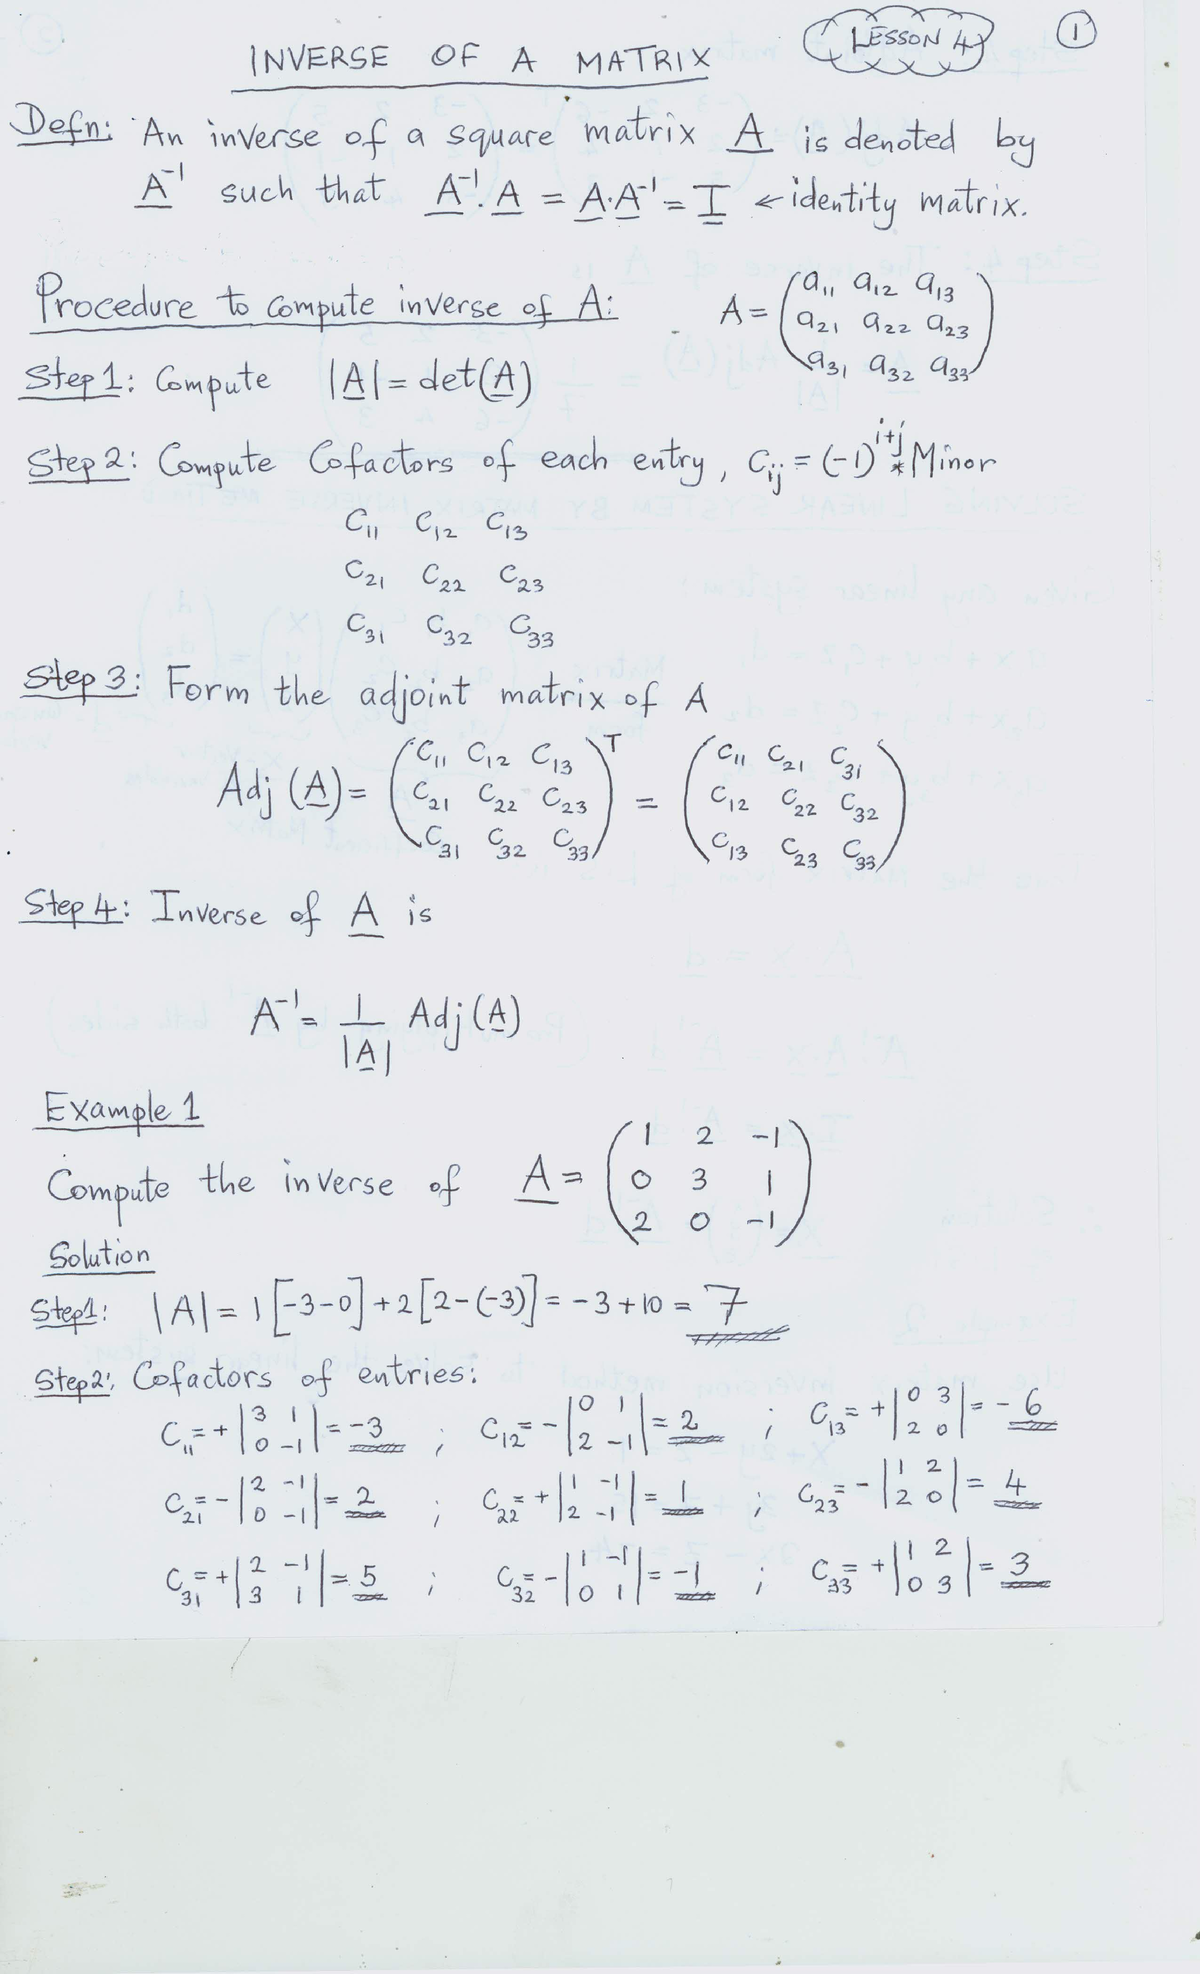 LESSON 4
1
INVERSE OF A MATRIX
Defn: An inverse of a square matrix A is denoted by
A⁻¹ such that A⁻¹.A = A.A⁻¹ = I ← identity matrix.
Procedure to compute inverse of A:
A = ( a₁₁ a₁₂ a₁₃
a₂₁ a₂₂ a₂₃
a₃₁ a₃₂ a₃₃ )
Step 1: Compute |A| = det(A)
Step 2: Compute Cofactors of each entry, Cᵢⱼ = (-1)^(i+j) * Minor
C₁₁ C₁₂ C₁₃
C₂₁ C₂₂ C₂₃
C₃₁ C₃₂ C₃₃
Step 3: Form the adjoint matrix of A
Adj (A) = ( C₁₁ C₁₂ C₁₃ )ᵀ = ( C₁₁ C₂₁ C₃₁
C₂₁ C₂₂ C₂₃ C₁₂ C₂₂ C₃₂
C₃₁ C₃₂ C₃₃ C₁₃ C₂₃ C₃₃ )
Step 4: Inverse of A is
A⁻¹ = 1/|A| Adj(A)
Example 1
Compute the inverse of A = ( 1 2 -1
0 3 1
2 0 -1 )
Solution
Step1: |A| = 1[-3-0] + 2[2-(-3)] = -3+10 = 7
Step2: Cofactors of entries:
C₁₁ = + |3 1; 0 -1| = -3 ; C₁₂ = - |0 1; 2 -1| = 2 ; C₁₃ = + |0 3; 2 0| = -6
C₂₁ = - |2 -1; 0 -1| = 2 ; C₂₂ = + |1 -1; 2 -1| = 1 ; C₂₃ = - |1 2; 2 0| = 4
C₃₁ = + |2 -1; 3 1| = 5 ; C₃₂ = - |1 -1; 0 1| = -1 ; C₃₃ = + |1 2; 0 3| = 3